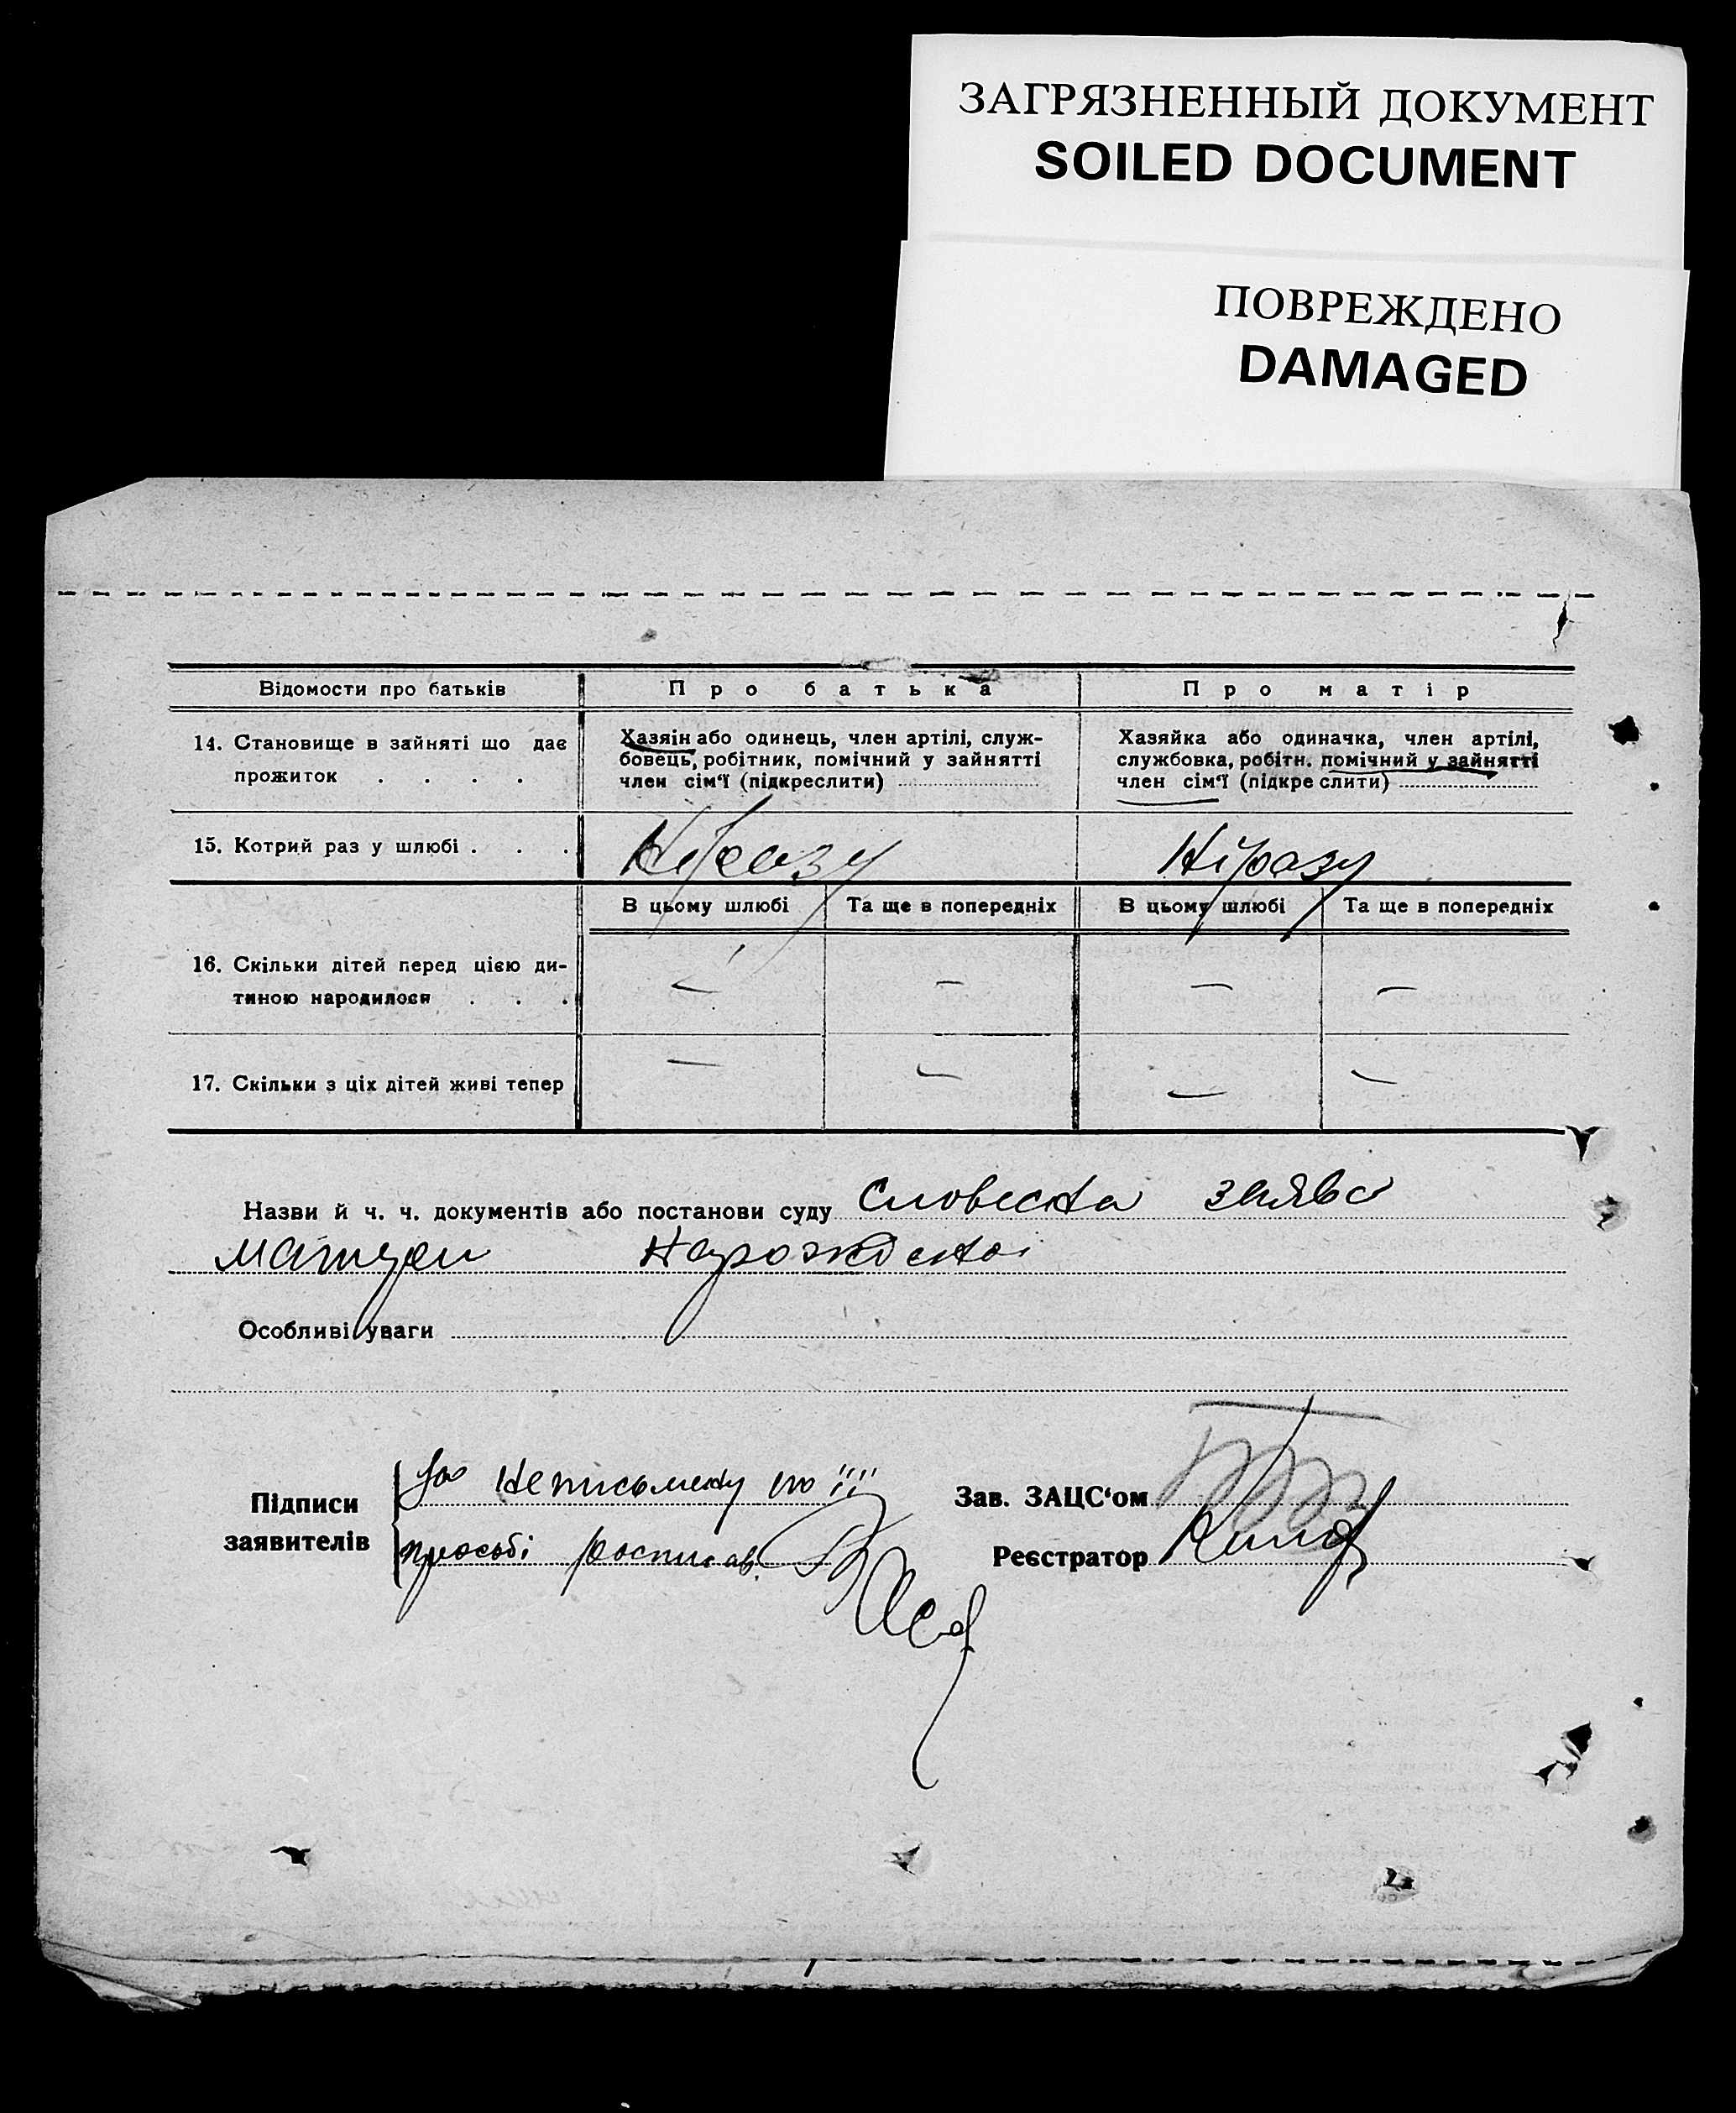 ЗАГРЯЗНЕННЫЙ ДОКУМЕНТ
SOILED DOCUMENT
ПОВРЕЖДЕНО
DAMAGED
Відомости про батьків
Про батька
Про матір
14. Становище в зайняті що дає
прожиток . . . .
Хазяін або одинець, член артілі, служ-
бовець, робітник, помічний у зайнятті
член сім'ї (підкреслити)
Хазяйка або одиначка, член артілі,
службовка, робітн. помічний у зайнятті
член сім'ї (підкреслити)
15. Котрий раз у шлюбі . . .
Ніразу
Ніразу
В цьому шлюбі
Та ще в попередніх
В цьому шлюбі
Та ще в попередніх
16. Скільки дітей перед цією ди-
тиною народилося . . .
— — — —
17. Скільки з ціх дітей живі тепер
— — — —
Назви й ч. ч. документів або постанови суду словесна заява
матери
Особливі уваги
Підписи
заявителів
за неписьменну по її
прозьбі росписав.
Зав. ЗАЦС'ом
Реєстратор